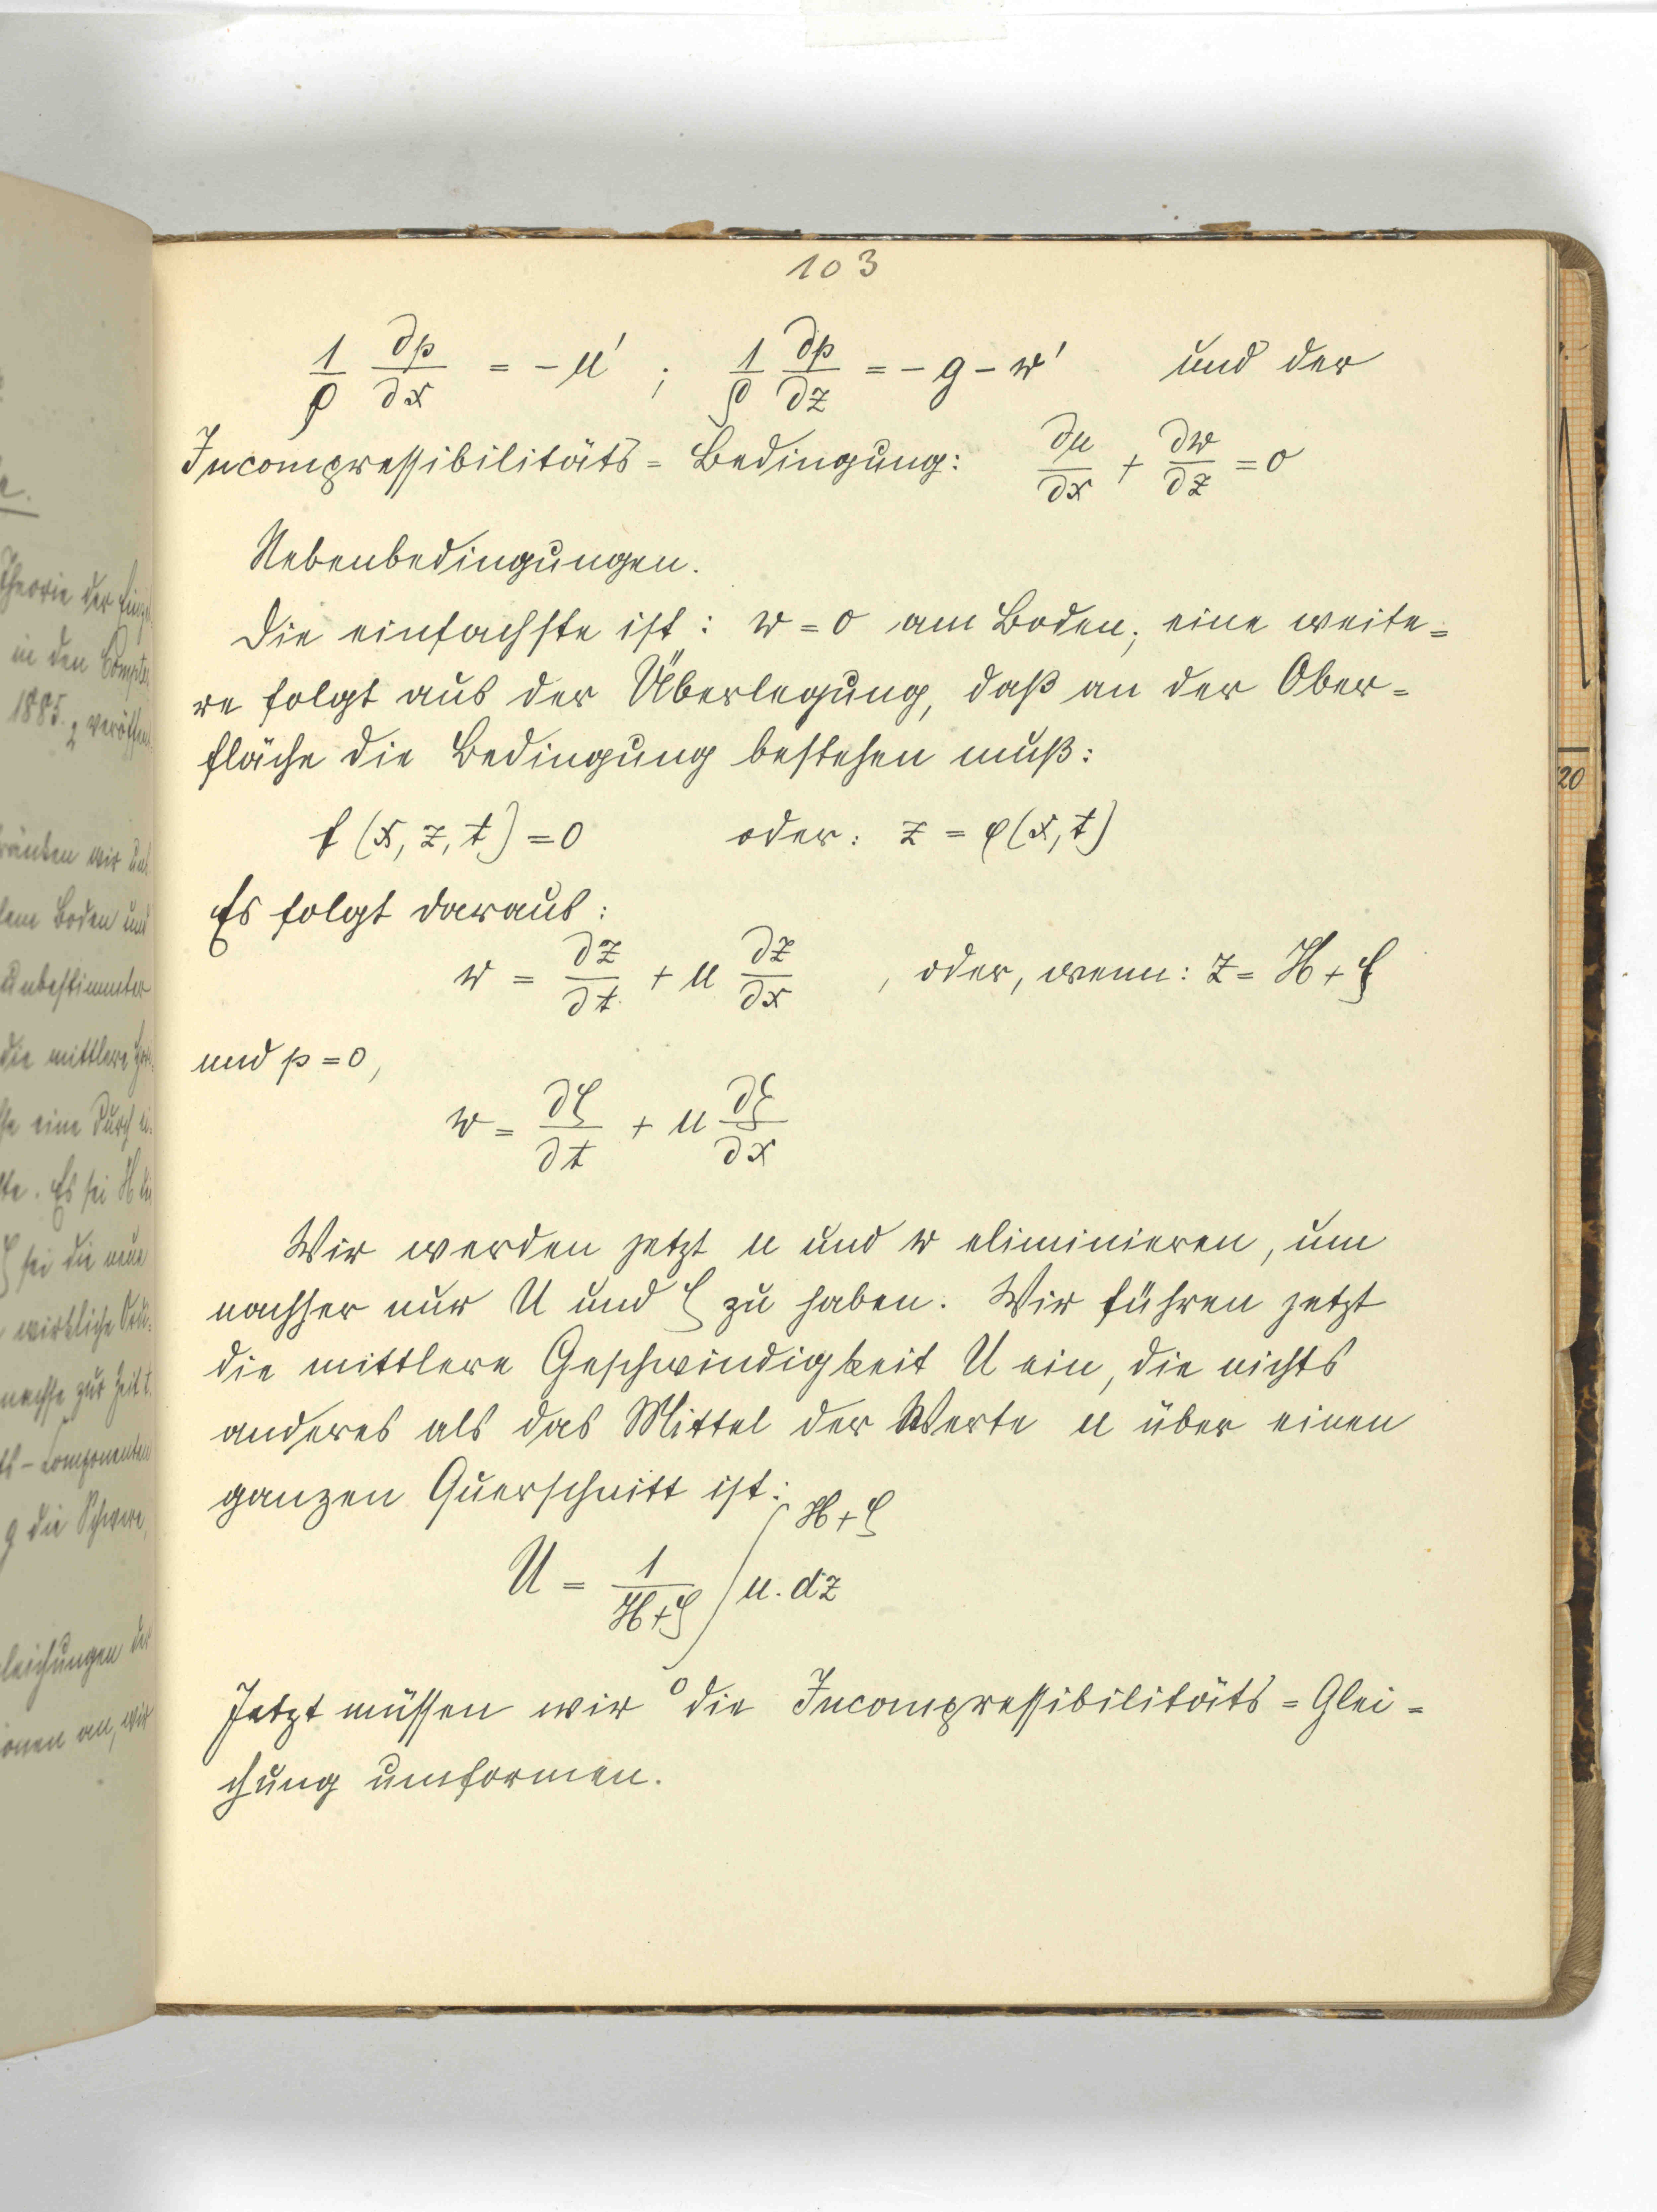 103
1/ρ ∂p/∂x = −u′ ; 1/ρ ∂p/∂z = −g−w′ und der
Incompressibilitäts= Bedingung: ∂u/∂x + ∂w/∂z = 0
Nebenbedingungen.
Die einfachste ist: w = 0 am Boden; eine weite=
re folgt aus der Überlegung, daß an der Ober=
fläche die Bedingung bestehen muß:
f (x, z, t) = 0 oder: z = φ(x, t)
Es folgt daraus:
w = ∂z/∂t + u ∂z/∂x , oder, wenn: z = H + ζ
und p = 0,
w = ∂ζ/∂t + u ∂ζ/∂x
Wir werden jetzt u und w eliminieren, um
nachher nur U und ζ zu haben. Wir führen jetzt
die mittlere Geschwindigkeit U ein, die nichts
anderes als das Mittel der Werte u über einen
ganzen Querschnitt ist:
U = 1/(H+ζ) ∫₀^(H+ζ) u. dz
Jetzt müssen wir die Incompressibilitäts=Glei=
chung umformen.
Theorie der
in den
1885
wir
Boden und
unbestimmter
die mittlere
eine durch
Es sei H
ζ sei die neue
wirkliche
zur Zeit t.
Componenten
g die Schwere,
der
an, wir
20